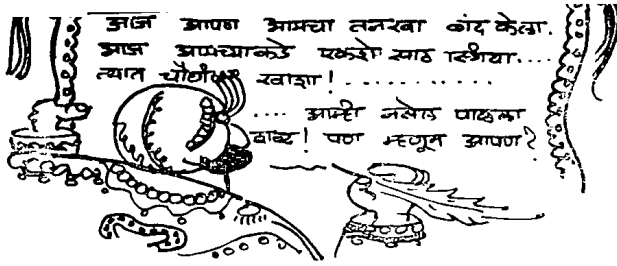 आज आपण आमचा तनखा बंद केला.
आज आमच्याकडे एकशे साठ स्त्रिया....
त्यात चौर्‍या खाशा!..............
.... आम्ही नसेल पाळला
शब्द! पण म्हणून आपण?